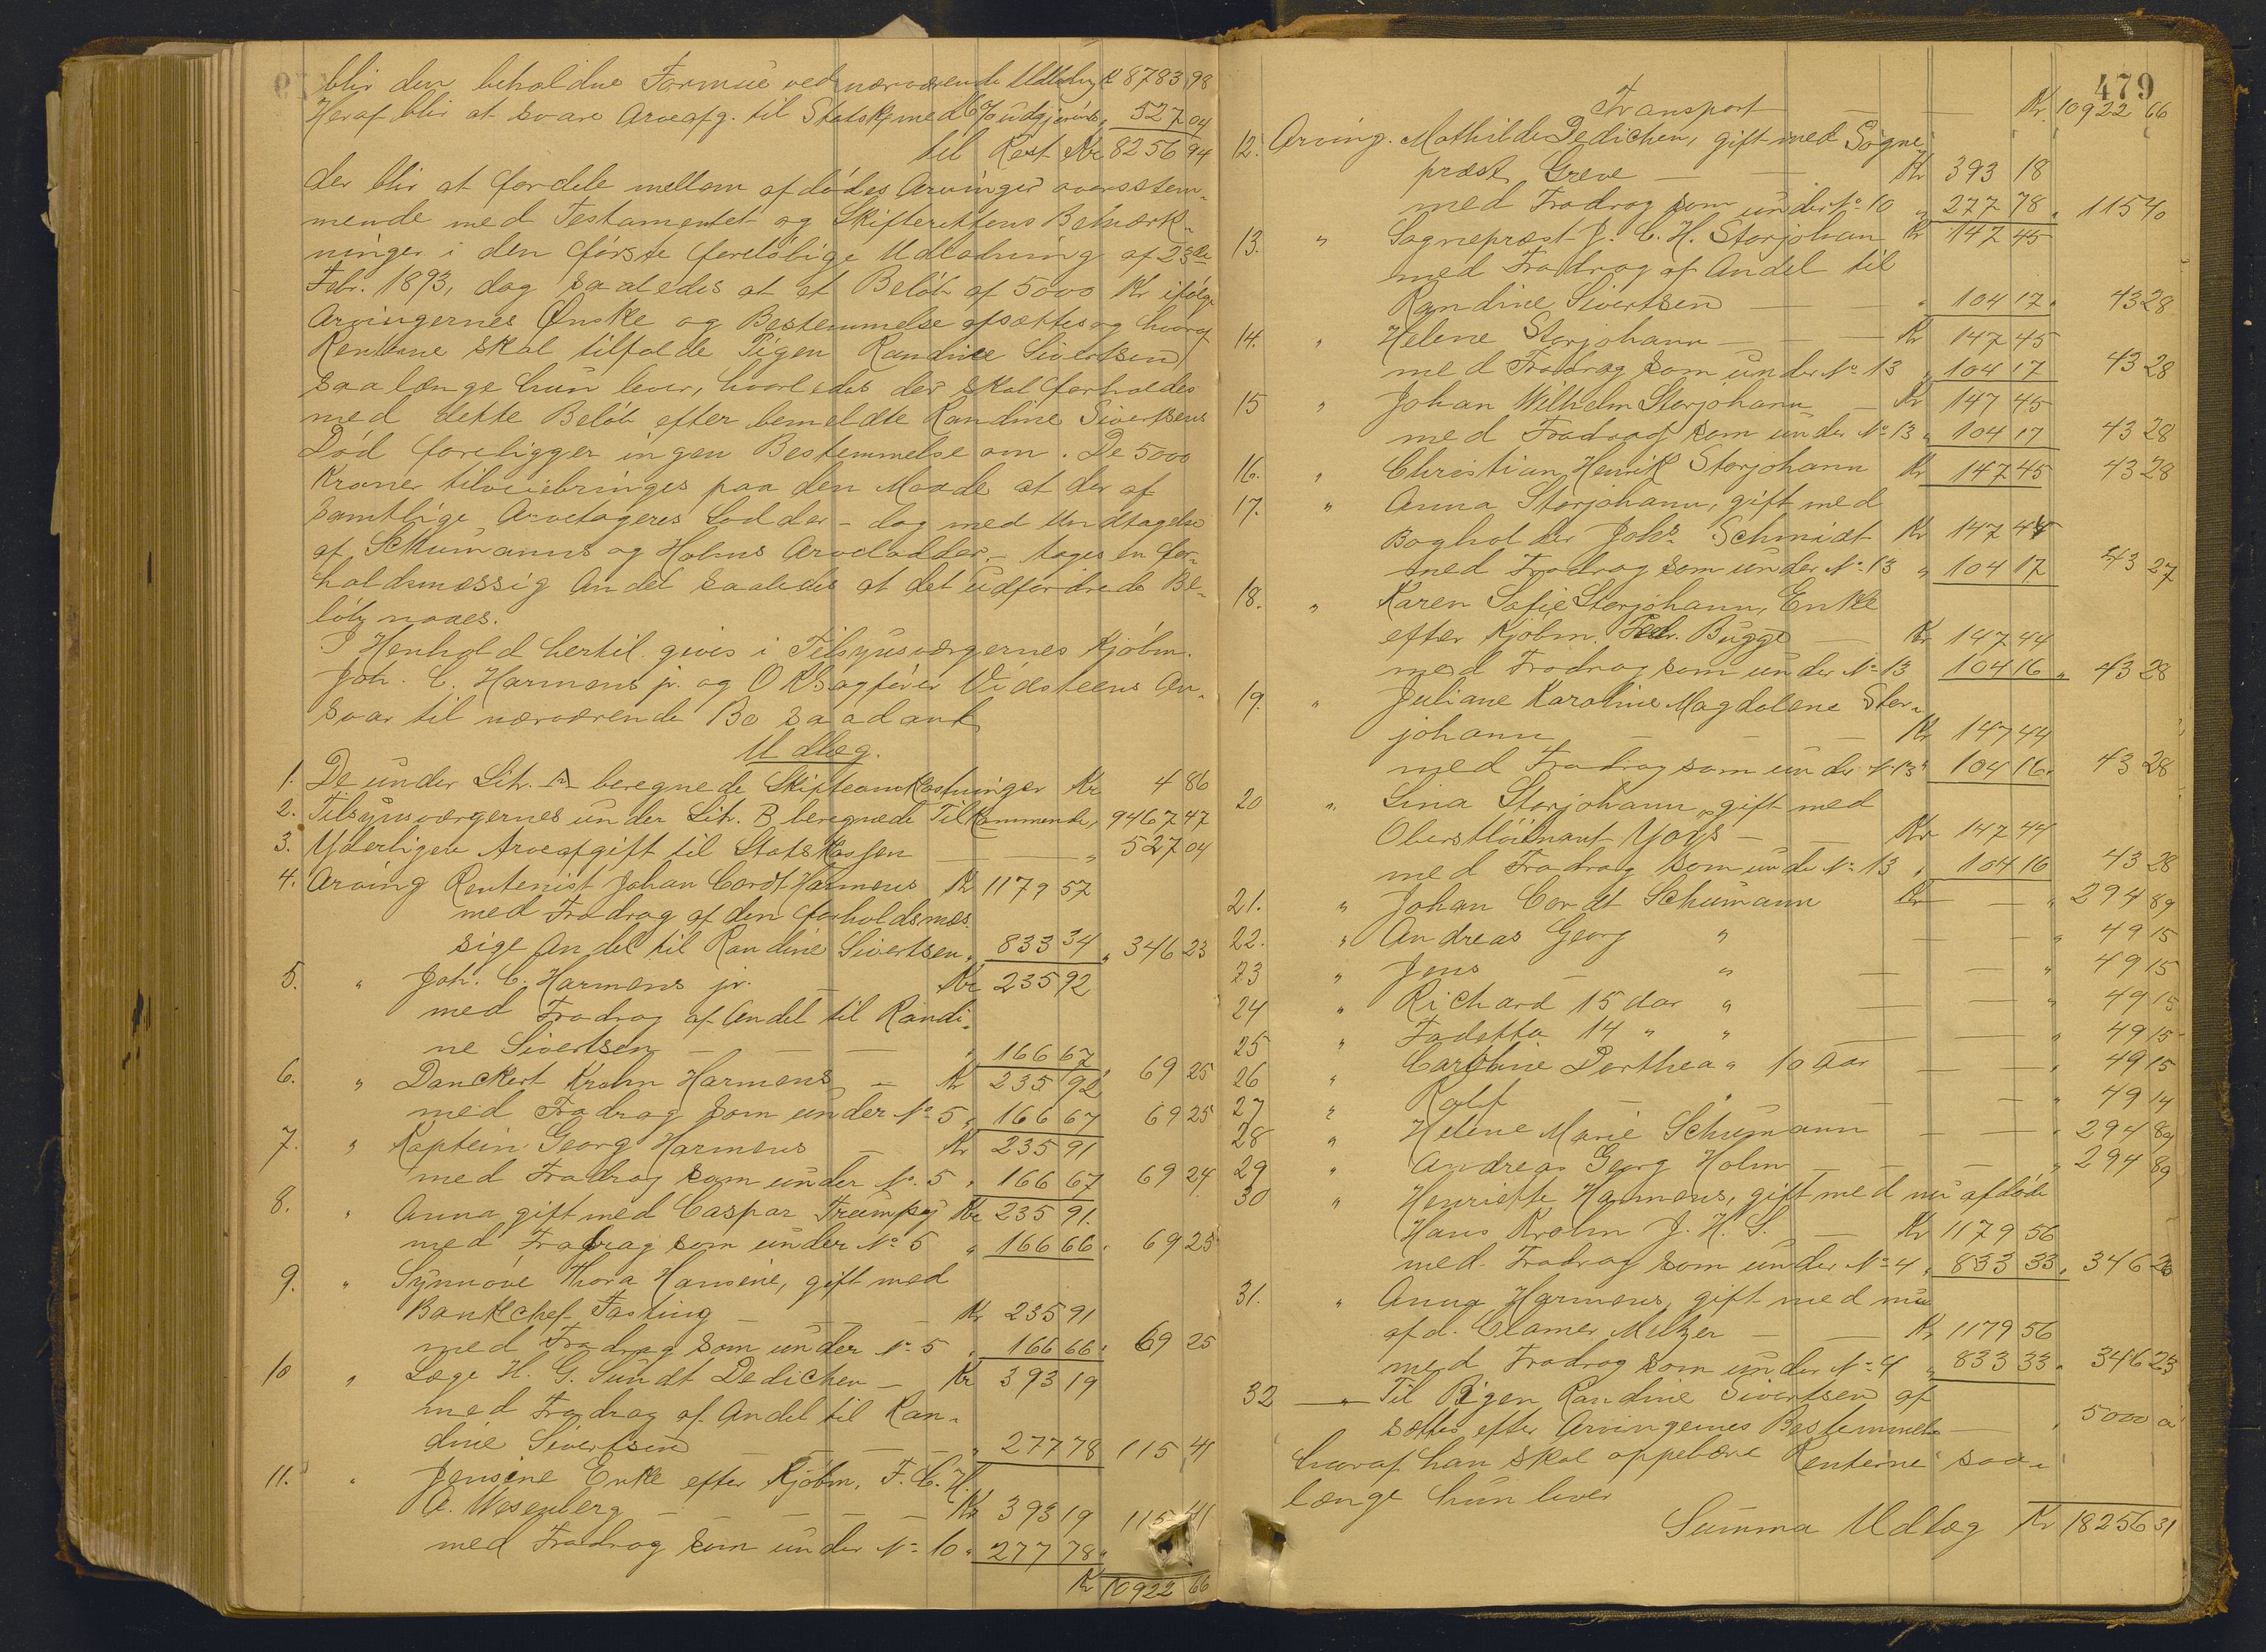 blir den beholdne Formue ved nærværende Udlodng K 8783 98
Heraf blir at svare Arveafg. til Statsk. med 6 % udgjörende „ 527 04
til Rest Kr 8256 94
der blir at fordele mellem afdödes Arvinger overrestem-
mende med Testamentet og Skifterettens Bemærk-
ninger i den förste forelöbige Udlodning af 23de
Febr. 1893, dog saaledes at et Belöb af 5000 Kr ifølge
Arvingernes Ønske og Bestemmelse afsættes og hvoraf
Renterne skal tilfalde Pigen Randine Sivertsen
saalænge hun lever, hvorledes der skal forholdes
med dette Belöb efter bemeldte Randine Sivertsens
Död foreligger ingen Bestemmelse om. De 5000
Kroner tilveiebringes paa den Maade at der af
samtlige Arvetageres Lodder – dog med Undtagelse
af Schumanns og Holms Arvelodder – tages en for-
holdsmæssig Andel saaledes at det udfordrede Be-
löb naaes.
I Henhold hertil gives i Tilsynsværgernes Kjöbm.
Joh. C. Harmens jr. og O R Sagförer Vidsteens An-
svar til nærværende Bo saadant
Udlæg.
1. De under Litr. A beregnede Skifteomkostninger Kr 4 86
2. Tilsynsværgernes under Litr. B beregnede Tilkommende, 9467 47
3. Yderligere Arveafgift til Statskassen — — „ 527 04
4. Arving Rentenist Johan Cordt Harmens Kr 1179 57
med Fradrag af den forholdsmæs-
sige Andel til Randine Sivertsen „ 833 34 „ 346 23
5. „ Joh. C. Harmens jr. — Kr 235 92
med Fradrag af Andel til Randi-
ne Sivertsen — — — „ 166 67
6. „ Danckert Krohn Harmens — Kr 235 92 69 25
med Fradrag som under No 5 „ 166 67 69 25
7. „ Kaptein Georg Harmens — Kr 235 91
med Fradrag som under No. 5 „ 166 67 69 24
8. „ Anna gift med Caspar Trumpy Kr 235 91.
med Fradrag som under No 5 „ 166 66 „ 69 25
9. „ Synnöve Thora Hansine, gift med
Bankchef Fasting — — Kr 235 91
med Fradrag som under No 5 „ 166 66 „ 69 25
10 „ Læge H. G. Sundt Dedichen — Kr 393 19
med Fradrag af Andel til Ran-
dine Sivertsen — — — „ 277 78 115 41
11. „ Jensine Enke efter Kjöbm. F. C. H.
A. Wesenberg — — — Kr 393 19 115 41
med Fradrag som under No 10 „ 277 78 „
Kr 10922 66
479
Transport — Kr. 10922 66
12. Arving. Mathilde Dedichen, gift med Sogne-
præst Greve — — Kr 393 18
med Fradrag som under No 10 „ 277 78 „ 115 40
13. „ Sognepræst J. C. H. Storjohan Kr 147 45
med Fradrag af Andel til
Randine Sivertsen — „ 104 17 „ 43 28
14. „ Helene Storjohann — — — Kr 147 45
med Fradrag som under No 13 „ 104 17 43 28
15 „ Johan Wilhelm Storjohann — Kr 147 45
med Fradrag som under No 13 „ 104 17 43 28
16. „ Christian Henrik Storjohann Kr 147 45 43 28
17. „ Anna Storjohann, gift med
Bogholder Johs. Schmidt Kr 147 44
med Fradrag som under No 13 „ 104 17 43 27
18. „ Karen Sofie Storjohann, Enke
efter Kjöbm. Fedr. Bugge — Kr 147 44
med Fradrag som under No 13 104 16 „ 43 28
19. „ Juliane Karoline Magdalene Stor-
johann — — — Kr 147 44
med Fradrag som under No 13 „ 104 16 „ 43 28
20 „ Lina Storjohann, gift med
Oberstlöitnant — — Kr 147 44
med Fradrag som under No 13 „ 104 16 43 28
21. „ Johan Cordt Schumann Kr — „ 294 89
22. „ Andreas Georg „ — — „ 49 15
23 „ Jens — „ — — „ 49 15
24 „ Richard 15 Aar „ — — „ 49 15
25 „ Fadetta 14 „ „ — — „ 49 15
26 „ Caroline Dorthea „ 10 Aar — — „ 49 15
27 „ Rolf — „ — — „ 49 14
28 „ Helene Marie Schumann — — „ 294 89
29 „ Andreas Georg Holm — — — „ 294 89
30 „ Henriette Harmens, gift med nu afdöde
Hans Krohn J. H. S. — Kr 1179 56
med Fradrag som under No 4 „ 833 33 „ 346 23
31. „ Anna Harmens, gift med nu
afd. Clamer Meltzer — — Kr 1179 56
med Fradrag som under No 4 „ 833 33 „ 346 23
32 —„— Til Pigen Randine Sivertsen af-
sættes efter Arvingernes Bestemmelse — „ 5000 „
hvoraf hun skal oppebære Renterne saa-
længe hun lever
Summa Udlæg Kr 18256 31